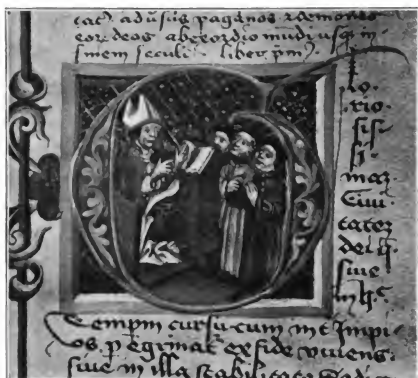 cac adusus paganos z demones
eor deos ab exordio mudi usq in
finem seculi liber pm
lo
rio
sis
si
maz
Ciui
tatez
dei q
siue
in hc
Tempm cursu cum int impi
os pegrinat ex fide viuens
siue in illa stabilitate